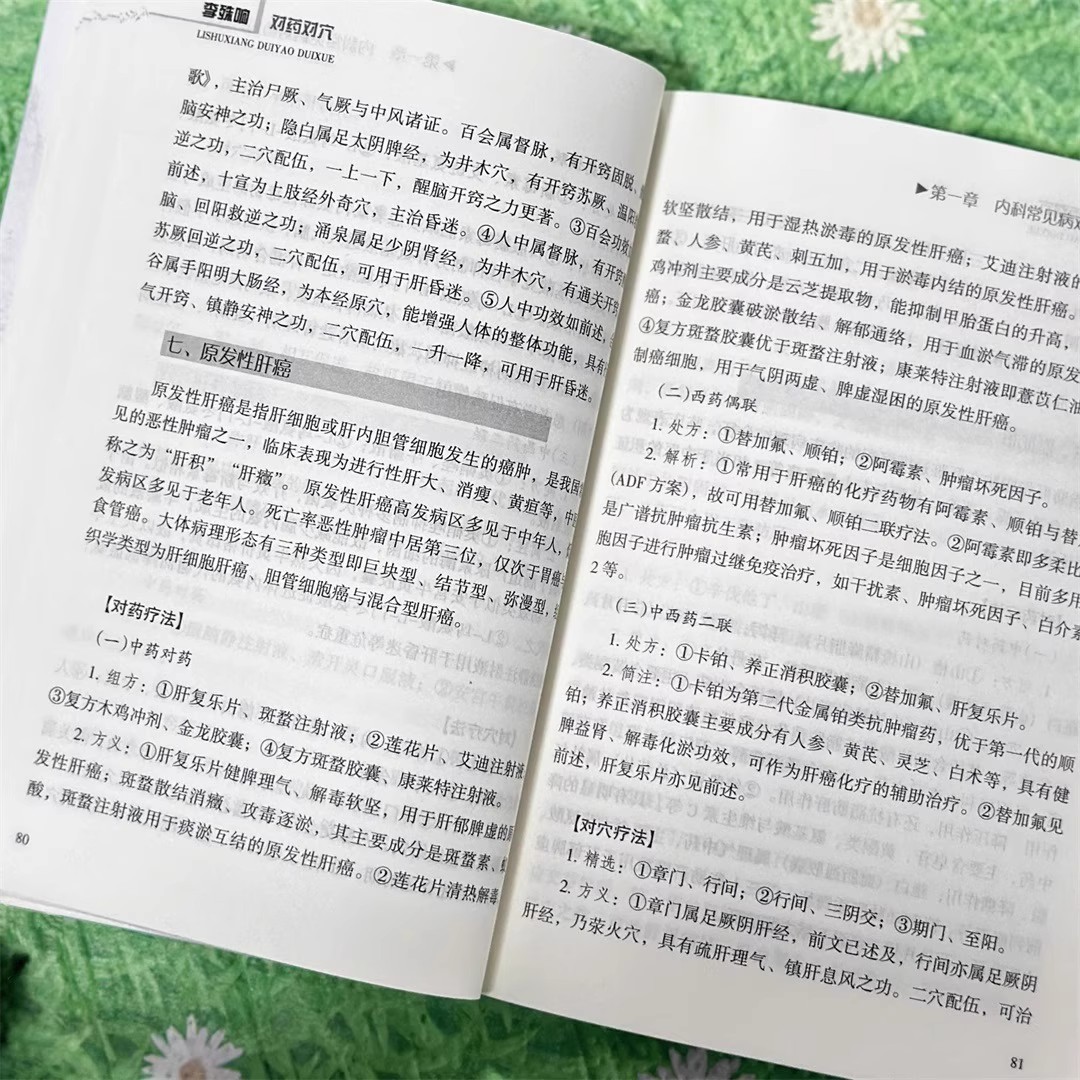 李
对药对穴
LISHUXIANG DUIYAO DUIXUE
歌》，主治尸厥、气厥与中风诸证。百会属督脉，有开窍固脱、
脑安神之功；隐白属足太阴脾经，为井木穴，有开窍苏厥、温阳
逆之功，二穴配伍，一上一下，醒脑开窍之力更著。③百会功效
前述，十宣为上肢经外奇穴，主治昏迷。④人中属督脉，有开窍
脑、回阳救逆之功；涌泉属足少阴肾经，为井木穴，有通关开窍
苏厥回逆之功，二穴配伍，可用于肝昏迷。⑤人中功效如前述，
谷属手阳明大肠经，为本经原穴，能增强人体的整体功能，具有
气开窍、镇静安神之功，二穴配伍，一升一降，可用于肝昏迷。
七、原发性肝癌
原发性肝癌是指肝细胞或肝内胆管细胞发生的癌肿，是我国
见的恶性肿瘤之一，临床表现为进行性肝大、消瘦、黄疸等，中
称之为“肝积”“肝癥”。原发性肝癌高发病区多见于中年人，
发病区多见于老年人。死亡率恶性肿瘤中居第三位，仅次于胃癌
食管癌。大体病理形态有三种类型即巨块型、结节型、弥漫型，
织学类型为肝细胞肝癌、胆管细胞癌与混合型肝癌。
【对药疗法】
(一)中药对药
1. 组方：①肝复乐片、斑蝥注射液；②莲花片、艾迪注射液
③复方木鸡冲剂、金龙胶囊；④复方斑蝥胶囊、康莱特注射液。
2. 方义：①肝复乐片健脾理气、解毒软坚，用于肝郁脾虚的原
发性肝癌；斑蝥散结消癥、攻毒逐淤，其主要成分是斑蝥素、
酸，斑蝥注射液用于痰淤互结的原发性肝癌。②莲花片清热解毒
80
▶第一章 内科常见病
软坚散结，用于湿热淤毒的原发性肝癌；艾迪注射液的
蝥、人参、黄芪、刺五加，用于淤毒内结的原发性肝癌。
鸡冲剂主要成分是云芝提取物，能抑制甲胎蛋白的升高，
癌；金龙胶囊破淤散结、解郁通络，用于血淤气滞的原发
④复方斑蝥胶囊优于斑蝥注射液；康莱特注射液即薏苡仁油
制癌细胞，用于气阴两虚、脾虚湿困的原发性肝癌。
(二)西药偶联
1. 处方：①替加氟、顺铂；②阿霉素、肿瘤坏死因子。
2. 解析：①常用于肝癌的化疗药物有阿霉素、顺铂与替
(ADF方案)，故可用替加氟、顺铂二联疗法。②阿霉素即多柔比
是广谱抗肿瘤抗生素；肿瘤坏死因子是细胞因子之一，目前多用
胞因子进行肿瘤过继免疫治疗，如干扰素、肿瘤坏死因子、白介素
2等。
(三)中西药二联
1. 处方：①卡铂、养正消积胶囊；②替加氟、肝复乐片。
2. 简注：①卡铂为第二代金属铂类抗肿瘤药，优于第一代的顺
铂；养正消积胶囊主要成分有人参、黄芪、灵芝、白术等，具有健
脾益肾、解毒化淤功效，可作为肝癌化疗的辅助治疗。②替加氟见
前述，肝复乐片亦见前述。
【对穴疗法】
1. 精选：①章门、行间；②行间、三阴交；③期门、至阳。
2. 方义：①章门属足厥阴肝经，前文已述及，行间亦属足厥阴
肝经，乃荥火穴，具有疏肝理气、镇肝息风之功。二穴配伍，可治
81